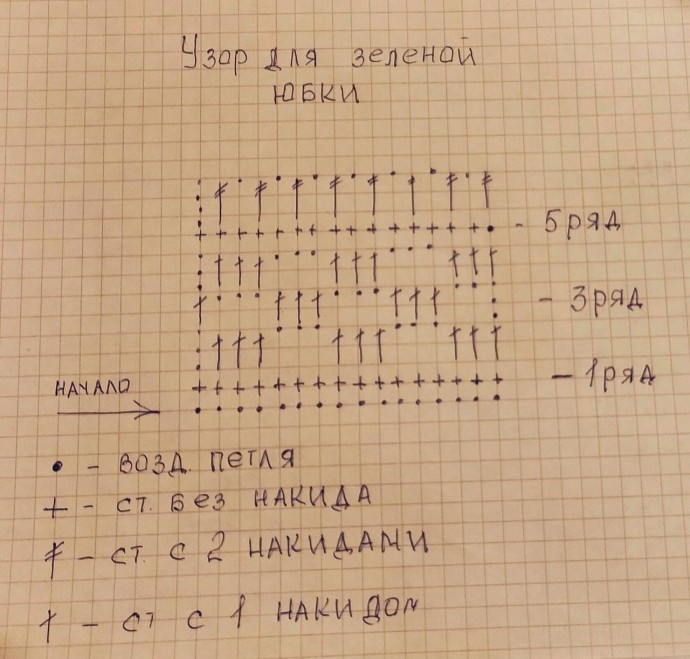 Узор для зеленой
ЮБКИ
- 5 ряд
- 3 ряд
- 1 ряд
НАЧАЛО
• - ВОЗД. ПЕТЛЯ
+ - СТ. БЕЗ НАКИДА
- СТ. С 2 НАКИДАМИ
† - СТ С 1 НАКИДОМ